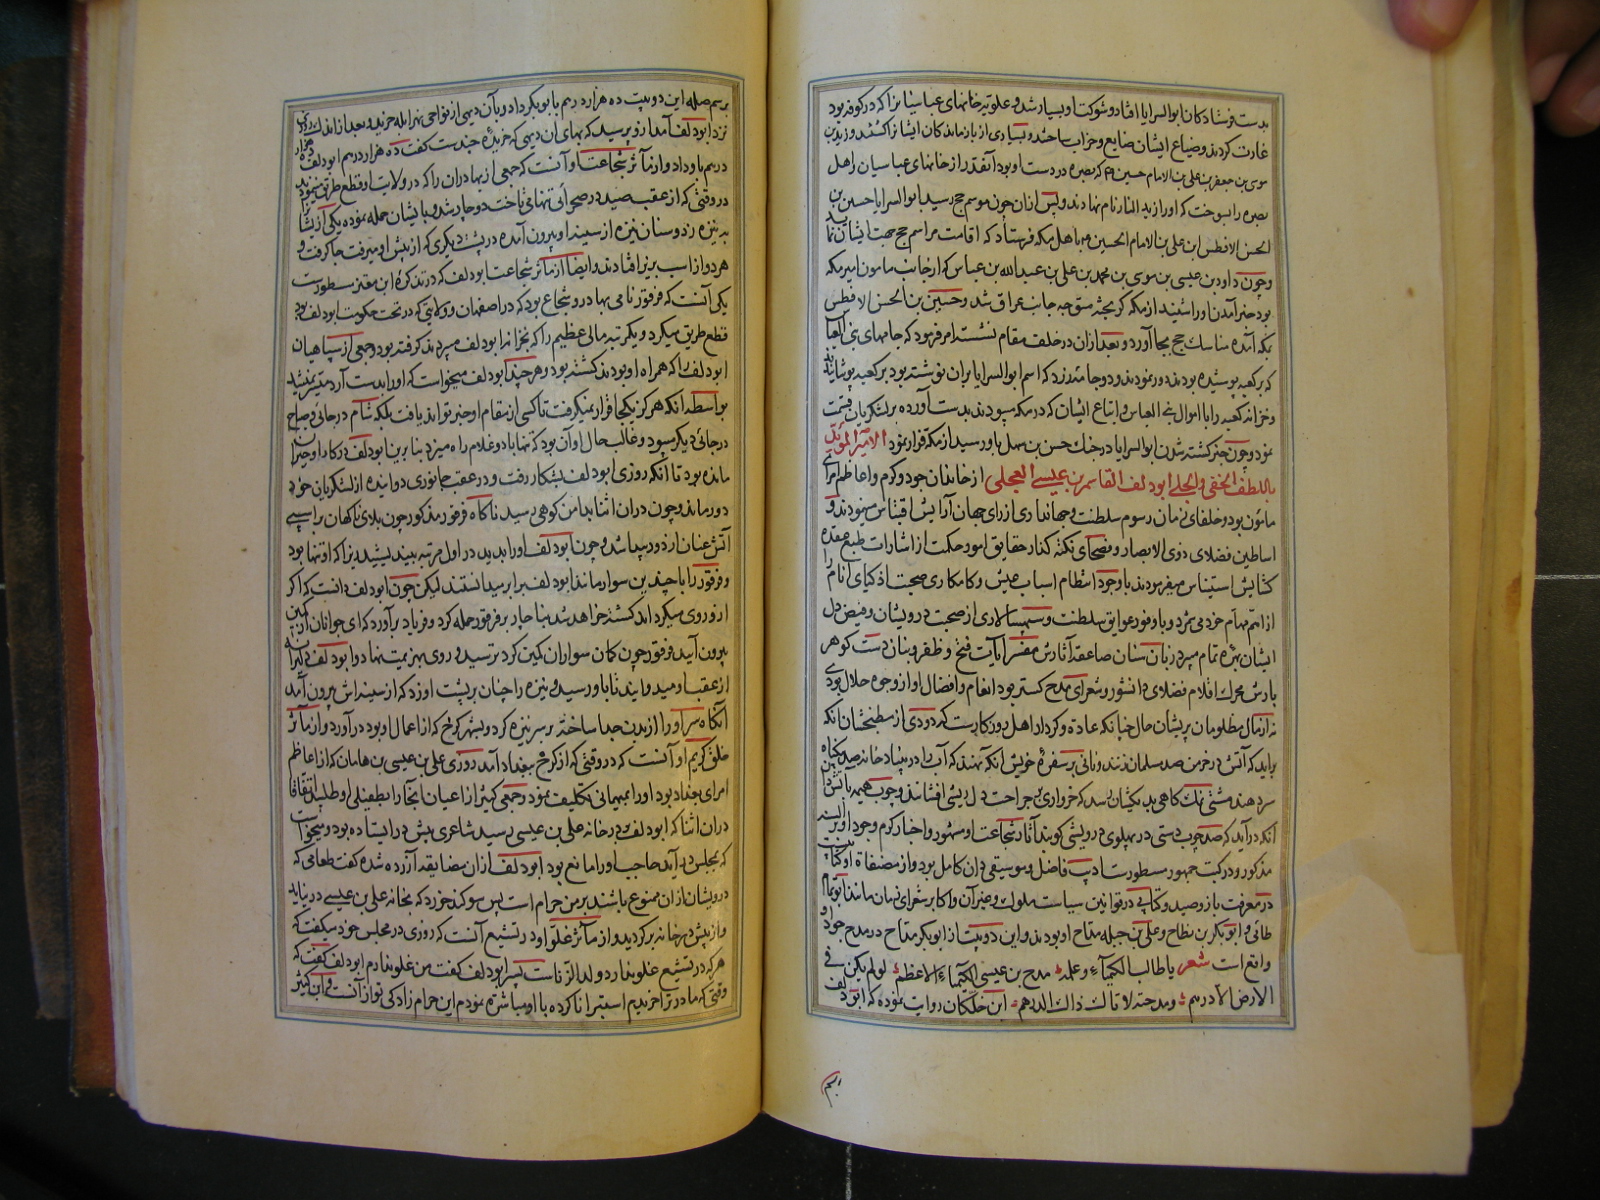 بدست فرستادکان ابوالسرایا افتاد و شوکت او بسیار شد و علویه خانهای عباسیانرا که در کوفه بود
غارت کردند و ضیاع ایشان ضایع و خراب ساختند و بسیاری از بازماندکان ایشانرا کشتند و زید بن
موسی بن جعفر بن علی بن الامام حسین که بصره در دست او بود آنقدر از خانهای عباسیان و اهل
بصره را بسوخت که او را زید النار نام نهادند و پس ازان چون موسم حج رسید ابوالسرایا حسین بن
الحسن الافطس ابن علی بن الامام الحسین با هل مکه فرستاد که اقامت مراسم حج جهت ایشان نماید
و چون داود بن عیسی بن موسی بن محمد بن علی بن عبدالله بن عباس که از جانب مامون امیر مکه
بود خبر آمدن او را شنید از مکه کریخته متوجه جانب عراق شد و حسین بن الحسن الافطس
بمکه آمده مناسک حج بجا آورد و بعد ازان در خلف مقام نشسته امر فرمود که جامهای بنی العباس
که بر کعبه پوشیده بودند دور نمودند و دو جامه زرد که اسم ابوالسرایا بران نوشته بود بر کعبه پوشانیدند
و خزانه کعبه را با اموال بنی العباس و اتباع ایشان که در مکه بودند بدست آورده بر لشکریان قسمت
نمود و چون خبر کشته شدن ابوالسرایا در جنک حسن بن سهل باو رسید از مکه فرار نمود الامیر المؤید
باللطف الخفی والجلی ابو دلف القاسم بن عیسی العجلی از خاندان جود و کرم و اعاظم امرای
مامون بود و خلفای زمان رسوم سلطنت و جهانداری از رای جهان آرایش اقتباس مینمودند و
اساطین فضلای ذوی الابصار و فصحای نکته کذار حقایق امور حکمت از اشارات طبع عقده
کشایش استیناس میفرمودند با وجود انتظام اسباب عیش و کامکاری صحبت اذکیای انام را
از اهم مهام خود می شمرد و با وفور عوایق سلطنت و سپهسالاری از صحبت درویشان و فیض دل
ایشان بهره تمام میبرد زبان سنان صاعقه آثارش مفسر آیات فتح و ظفر و بنان دست کوهر
بارش محرک اقلام فضلای دانشور و شعرای مدح کستر بود انعام و افضال او از وجوه حلال بودی
نه از مال مظلومان پریشان حال چنانکه عادة و کردار اهل روزکارست که دودی از مطبخشان انکه
براید که آتش در خرمن صد مسلمان زنند و نانی بر سفره خویش انکه نهند که آب در بنیاد خانه صد بیکناه
سر دهند مشتی نمک کاهی بدیکشان رسد که خرواری بر جراحت دل ریشی افشانند و چوب هیمه بآتش دان
آنکه دراید که صد چوب دستی در پهلوی درویشی کوبند آثار شجاعت او مشهور و اخبار کرم وجود او بر السنه
مذکور و در کتب جمهور مسطورست ادیب فاضل و موسیقی دان کامل بود و از مصنفات او کتابیست
در معرفت باز و صید و کتابی در قوانین سیاست ملوک و غیر آن و اکابر شعرای زمان مانند ابو تمام
طائی و ابو بکر بن نطاح و علی بن جبله مداح او بودند و این دو بیت از ابو بکر مداح در مدح جود او
واقع است شعر یا طالبا للکیمیاء و علمه مدح بن عیسی الکیمیاء الاعظم لو لم یکن فی
الارض الا درهم و مدحته لاتاک ذاک الدرهم ابن خلکان روایت نموده که ابو دلف
برسم صله این دو بیت ده هزار درهم بابو بکر داد و بآن دیهی از نواحی نهر ابله خرید و بعد از اندک روزی
نزد ابو دلف آمد ازو پرسید که بهای آن دیهی که خریدۀ چندست کفت ده هزار درهم ابو دلف ده هزار
درهم باو داد و از مآثر شجاعت او آنست که جمعی از بهادران را که در ولایت او قطع طریق مینمودند
در وقتی که از عقب صید در صحرائی تنهائی تاخت دوچار شد و بایشان حمله نموده یکی از ایشانرا
به نیزه زد و سنان نیزه از سینه او بیرون آمده در پشت دیکری که از پیش او میرفت جا کرفت و
هر دو از اسب بزیر افتادند و ایضا از مآثر شجاعت ابو دلف که در تذکرۀ ابن معتز مسطورست
یکی آنست که قرقور نامی بهادر و شجاع بود که در اصفهان و ولایتی که در تحت حکومت ابو دلف بود
قطع طریق میکرد و یکمرتبه مالی عظیم را که بخزانه ابو دلف میبردند کرفته بود و جمعی از سپاهیان
ابو دلف را که همراه او بودند کشته بود و هر چند ابو دلف میخواست که او را بدست آرد میسر نمیشد
بواسطه آنکه هرکز یکجا قرار نمیکرفت تا کسی از مقام او خبر تواند یافت بلکه شام در جائی و صباح
در جائی دیکر میبود و غالب حال او آن بود که تنها با دو غلام راه میرد بنا برین ابو دلف در کار او حیران
مانده بود تا آنکه روزی ابو دلف بشکار رفت و در عقب جانوری دوانیده از لشکریان خود
دور ماند و چون دران اثنا بدامن کوهی رسید ناکاه قرقور مذکور چون بلای ناکهان بر اسپی
آتش عنان از دور پیدا شد و چون ابو دلف او را بدید در اول مرتبه بیندیشید زیرا که او تنها بود
و قرقور را با چندین سوار مانند ابو دلف برابر میدانستند لیکن چون ابو دلف دانست که اکر
ازو روی میکرداند کشته خواهد شد بناچار بر قرقور حمله کرد و فریاد برآورد که ای جوانان از کمین
بیرون آیید قرقور چون کمان سواران کمین کرد بترسید و روی بهزیمت نهاد و ابو دلف دلیرانه
از عقب او میدوانید تا باو رسید و نیزه را چنان بر پشت او زد که از سینه اش بیرون آمد
آنکاه سر او را از بدن جدا ساخته بر سر نیزه کرد و بشهر کرخ که از اعمال او بود در آورد و از مآثر
خلق کریم او آنست که در وقتی که از کرخ ببغداد آمد روزی علی بن عیسی بن هامان که از اعاظم
امرای بغداد بود او را بمهمانی تکلیف نمود و جمعی کثیر از اعیان آنجا را بطفیلی او طلبید اتفاقا
دران اثنا که ابو دلف بر در خانه علی بن عیسی رسید شاعری پیش در ایستاده بود و میخواست
که بمجلس در آید حاجب او را مانع بود ابو دلف ازان مضایقه آزرده شده کفت طعامی که
درویشان ازان ممنوع باشند بر من حرام است پس سوکند خورد که بخانه علی بن عیسی در نیاید
و از پیش در خانه برکردید و از مآثر غلو او در تشیع آنست که روزی در مجلس خود میکفت که
هر که در تشیع غلو ندارد ولد الزناست پسر ابو دلف کفت من غلو ندارم ابو دلف کفت که
وقتی که مادر ترا خریدم استبرا نا کرده با او مباشرت نمودم این حرام زادکی تو از آنست و ابن کثیر